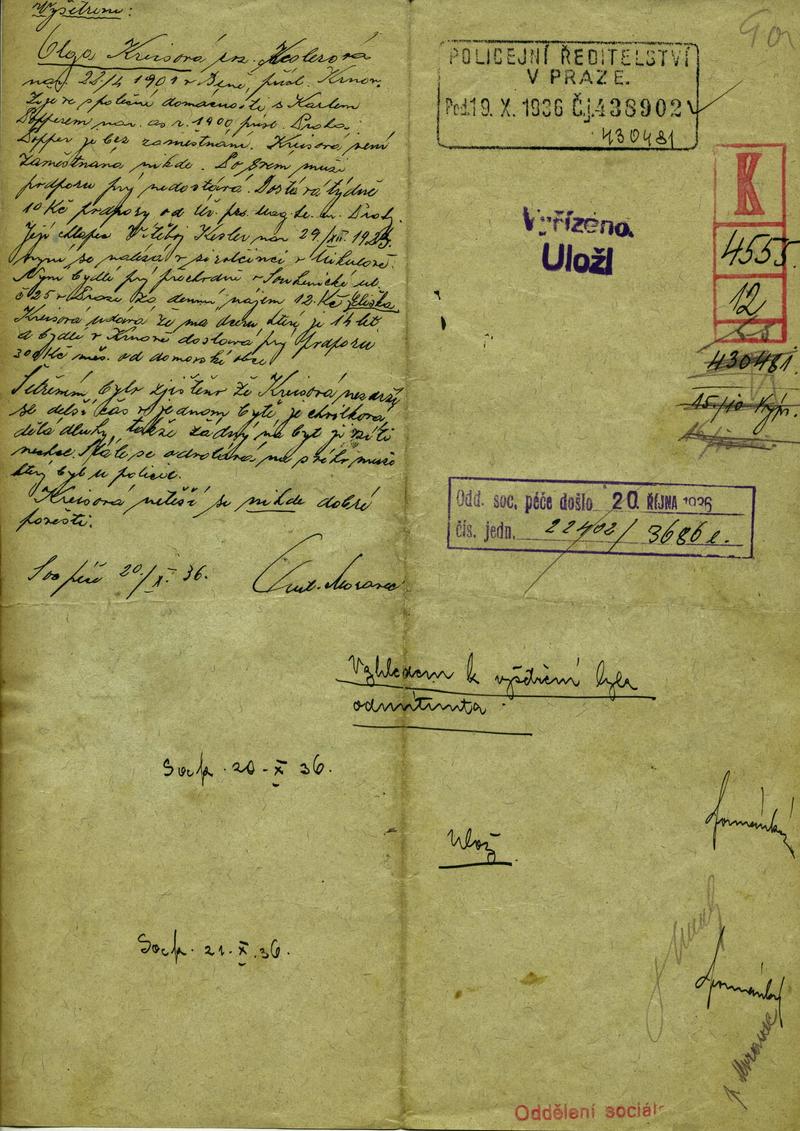 Vyšetřeno:
Olga Kreisová roz. Keslerová
nar. 1901 v příst. Krnov.
Žije ve společné domácnosti s Karlem
Pepperem nar. as r. 1900 příst. Praha.
Pepper je bez zaměstnání. Kreisová není
zaměstnána nikde. Po svém muži
podporu prý nedostává. Dostává týdně
10 Kč podpory od
Její chlapec Kesler nar 29/XII. 1923.
nyní se nalézá v sirotčinci v Mikulově.
Nyní bydlí prý přechodně v Soukenické ul.
č 25 v Praze za denní nájem 12 Kč
Kreisová udává že má dceru, který je 14 let
a bydlí v Krnově dostává prý podporu
300 Kč měs. od domovské obce.
Šetřením bylo zjištěno že Kreisová nezdrží
se delší čas v jednom bytě, je
dělá dluhy, takže žádný na byt ji vzíti
nechce. Stále se odvolává na svého muže
který byl u policie.
Kreisová netěší se nikde dobré
pověsti.
Soc péče 20/X. 36.
POLICEJNÍ ŘEDITELSTVÍ
V PRAZE.
Pod. 19. X. 1936 Čj. 438902
430481
Vyřízeno.
Uložl
K
4555
12
430481
15/10 Vyp.
Odd. soc. péče došlo 20. ŘÍJNA 1936
čís. jedn. 22402/3686 e.
Vzhledem k vyšetření byla
odmítnuta.
Soc p. 20 - X 36.
Formánková
Ulož.
Soc p. 21. X. 36.
Formánková
Oddělení sociáln